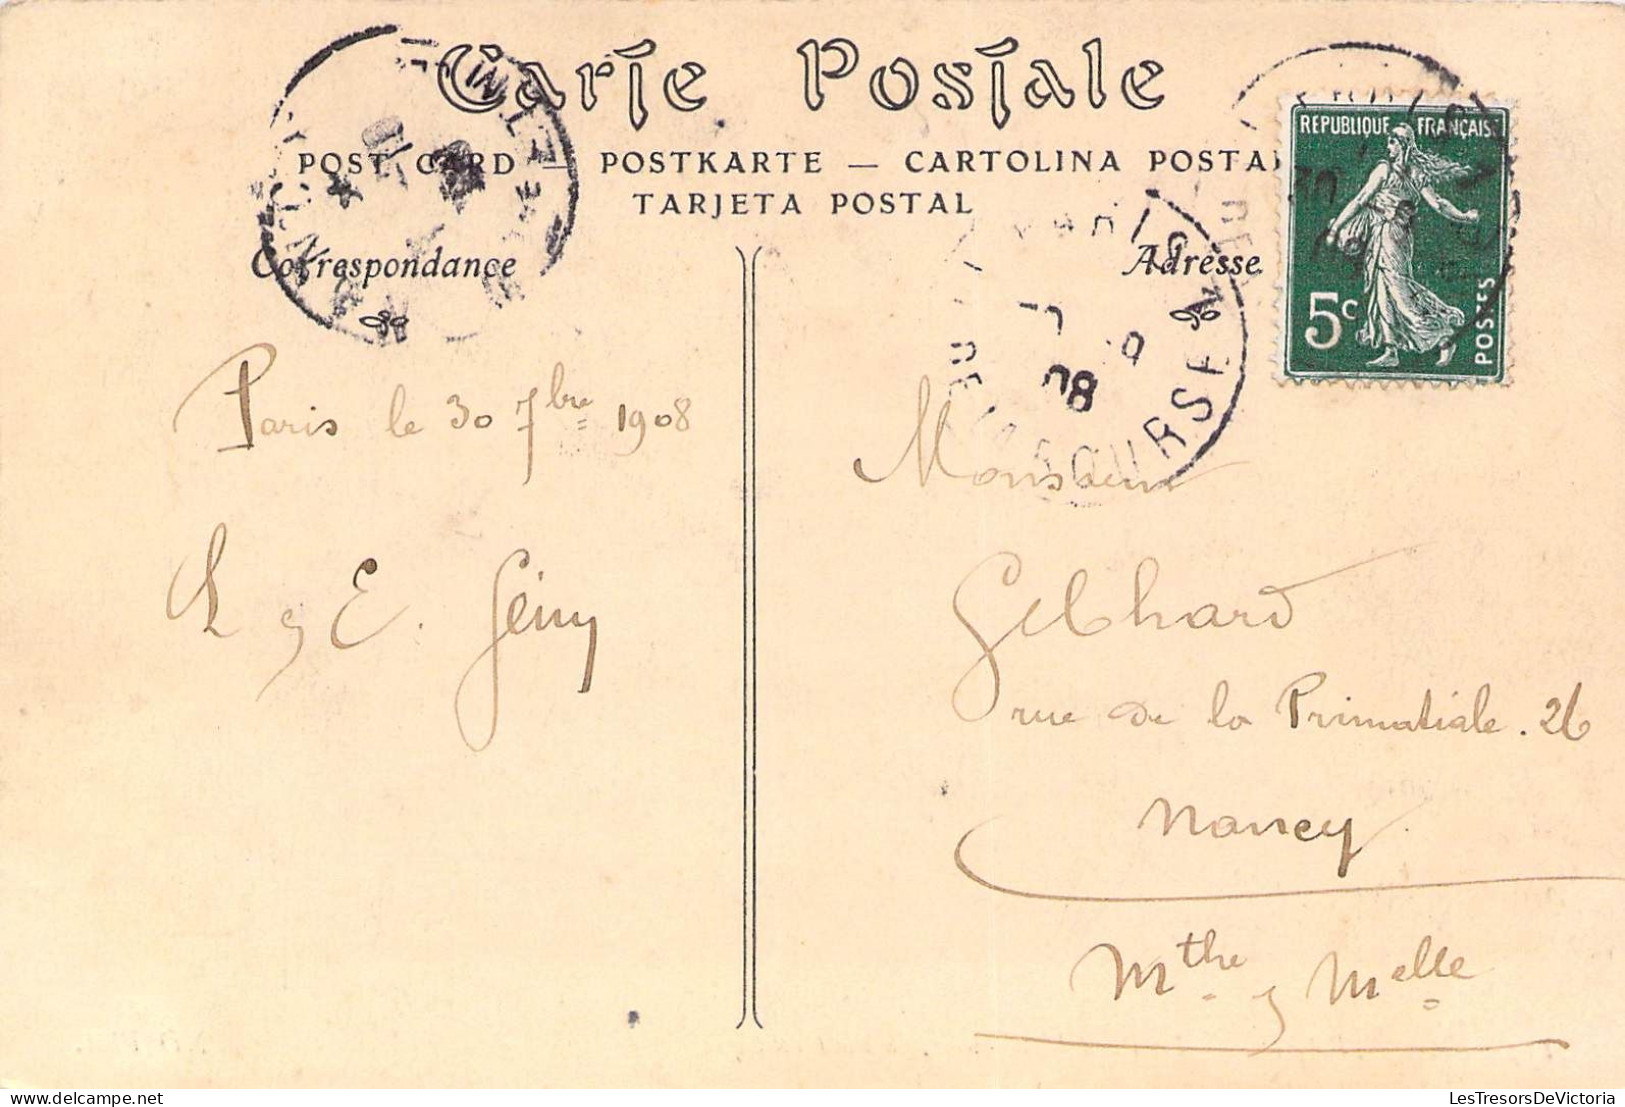 Carte Postale
POST CARD — POSTKARTE — CARTOLINA POSTA
TARJETA POSTAL
Correspondance
Adresse
RÉPUBLIQUE FRANÇAISE
5c
POSTES
08
BOURSE
Paris le 30 7bre 1908
L & E. Gény
Monsieur
Gebhard
rue de la Primatiale. 26
Nancy
Mthe & Melle
LesTresorsDeVictoria